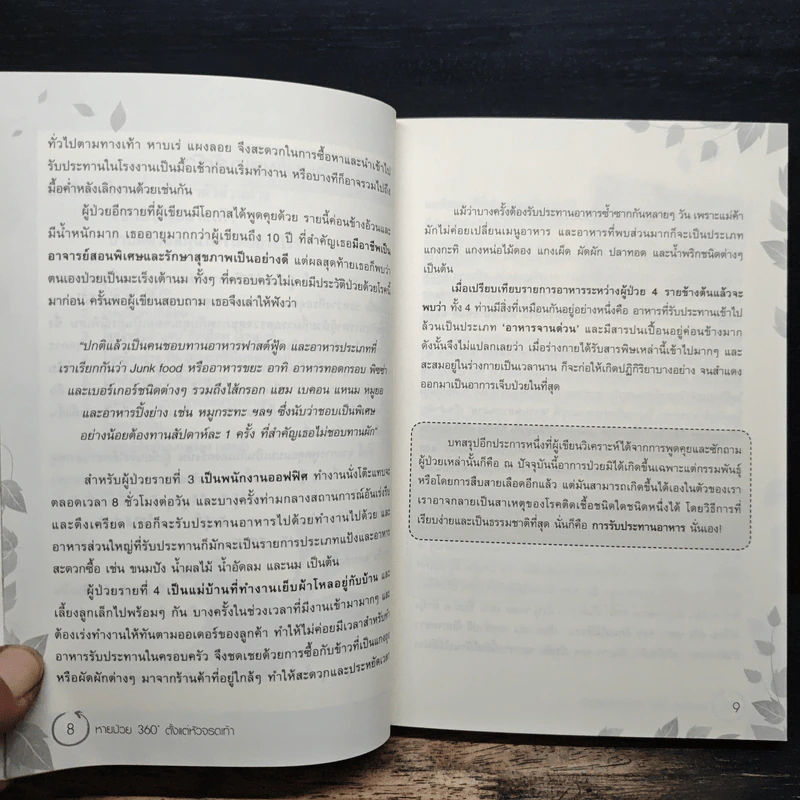 ทั่วไปตามทางเท้า หาบเร่ แผงลอย จึงสะดวกในการซื้อหาและนำเข้าไป
รับประทานในโรงงานเป็นมื้อเช้าก่อนเริ่มทำงาน หรือบางทีก็อาจรวมไปถึง
มื้อค่ำหลังเลิกงานด้วยเช่นกัน
ผู้ป่วยอีกรายที่ผู้เขียนมีโอกาสได้พูดคุยด้วย รายนี้ค่อนข้างอ้วนและ
มีน้ำหนักมาก เธออายุมากกว่าผู้เขียนถึง 10 ปี ที่สำคัญเธอมีอาชีพเป็น
อาจารย์สอนพิเศษและรักษาสุขภาพเป็นอย่างดี แต่ผลสุดท้ายเธอก็พบว่า
ตนเองป่วยเป็นมะเร็งเต้านม ทั้งๆ ที่ครอบครัวไม่เคยมีประวัติป่วยด้วยโรคนี้
มาก่อน ครั้นพอผู้เขียนสอบถาม เธอจึงเล่าให้ฟังว่า
“ปกติแล้วเป็นคนชอบทานอาหารฟาสต์ฟู้ด และอาหารประเภทที่
เราเรียกกันว่า Junk food หรืออาหารขยะ อาทิ อาหารทอดกรอบ พิซซ่า
และเบอร์เกอร์ชนิดต่างๆ รวมถึงไส้กรอก แฮม เบคอน แหนม หมูยอ
และอาหารปิ้งย่าง เช่น หมูกระทะ ฯลฯ ซึ่งนับว่าชอบเป็นพิเศษ
อย่างน้อยต้องทานสัปดาห์ละ 1 ครั้ง ที่สำคัญเธอไม่ชอบทานผัก”
สำหรับผู้ป่วยรายที่ 3 เป็นพนักงานออฟฟิศ ทำงานนั่งโต๊ะแทบจะ
ตลอดเวลา 8 ชั่วโมงต่อวัน และบางครั้งท่ามกลางสถานการณ์อันเร่งรีบ
และตึงเครียด เธอก็จะรับประทานอาหารไปด้วยทำงานไปด้วย และ
อาหารส่วนใหญ่ที่รับประทานก็มักจะเป็นรายการประเภทแป้งและอาหาร
สะดวกซื้อ เช่น ขนมปัง น้ำผลไม้ น้ำอัดลม และนม เป็นต้น
ผู้ป่วยรายที่ 4 เป็นแม่บ้านที่ทำงานเย็บผ้าโหลอยู่กับบ้าน และ
เลี้ยงลูกเล็กไปพร้อมๆ กัน บางครั้งในช่วงเวลาที่มีงานเข้ามามากๆ และ
ต้องเร่งทำงานให้ทันตามออเดอร์ของลูกค้า ทำให้ไม่ค่อยมีเวลาสำหรับทำ
อาหารรับประทานในครอบครัว จึงชดเชยด้วยการซื้อกับข้าวที่เป็นแกงถุง
หรือผัดผักต่างๆ มาจากร้านค้าที่อยู่ใกล้ๆ ทำให้สะดวกและประหยัดเวลา
8 หายป่วย 360° ตั้งแต่หัวจรดเท้า
แม้ว่าบางครั้งต้องรับประทานอาหารซ้ำซากกันหลายๆ วัน เพราะแม่ค้า
มักไม่ค่อยเปลี่ยนเมนูอาหาร และอาหารที่พบส่วนมากก็จะเป็นประเภท
แกงกะทิ แกงหน่อไม้ดอง แกงเผ็ด ผัดผัก ปลาทอด และน้ำพริกชนิดต่างๆ
เป็นต้น
เมื่อเปรียบเทียบรายการอาหารระหว่างผู้ป่วย 4 รายข้างต้นแล้วจะ
พบว่า ทั้ง 4 ท่านมีสิ่งที่เหมือนกันอยู่อย่างหนึ่งคือ อาหารที่รับประทานเข้าไป
ล้วนเป็นประเภท ‘อาหารจานด่วน’ และมีสารปนเปื้อนอยู่ค่อนข้างมาก
ดังนั้นจึงไม่แปลกเลยว่า เมื่อร่างกายได้รับสารพิษเหล่านี้เข้าไปมากๆ และ
สะสมอยู่ในร่างกายเป็นเวลานาน ก็จะก่อให้เกิดปฏิกิริยาบางอย่าง จนสำแดง
ออกมาเป็นอาการเจ็บป่วยในที่สุด
บทสรุปอีกประการหนึ่งที่ผู้เขียนวิเคราะห์ได้จากการพูดคุยและซักถาม
ผู้ป่วยเหล่านั้นก็คือ ณ ปัจจุบันนี้อาการป่วยมิได้เกิดขึ้นเฉพาะแต่กรรมพันธุ์
หรือโดยการสืบสายเลือดอีกแล้ว แต่มันสามารถเกิดขึ้นได้เองในตัวของเรา
เราอาจกลายเป็นสาเหตุของโรคติดเชื้อชนิดใดชนิดหนึ่งได้ โดยวิธีการที่
เรียบง่ายและเป็นธรรมชาติที่สุด นั่นก็คือ การรับประทานอาหาร นั่นเอง!
9